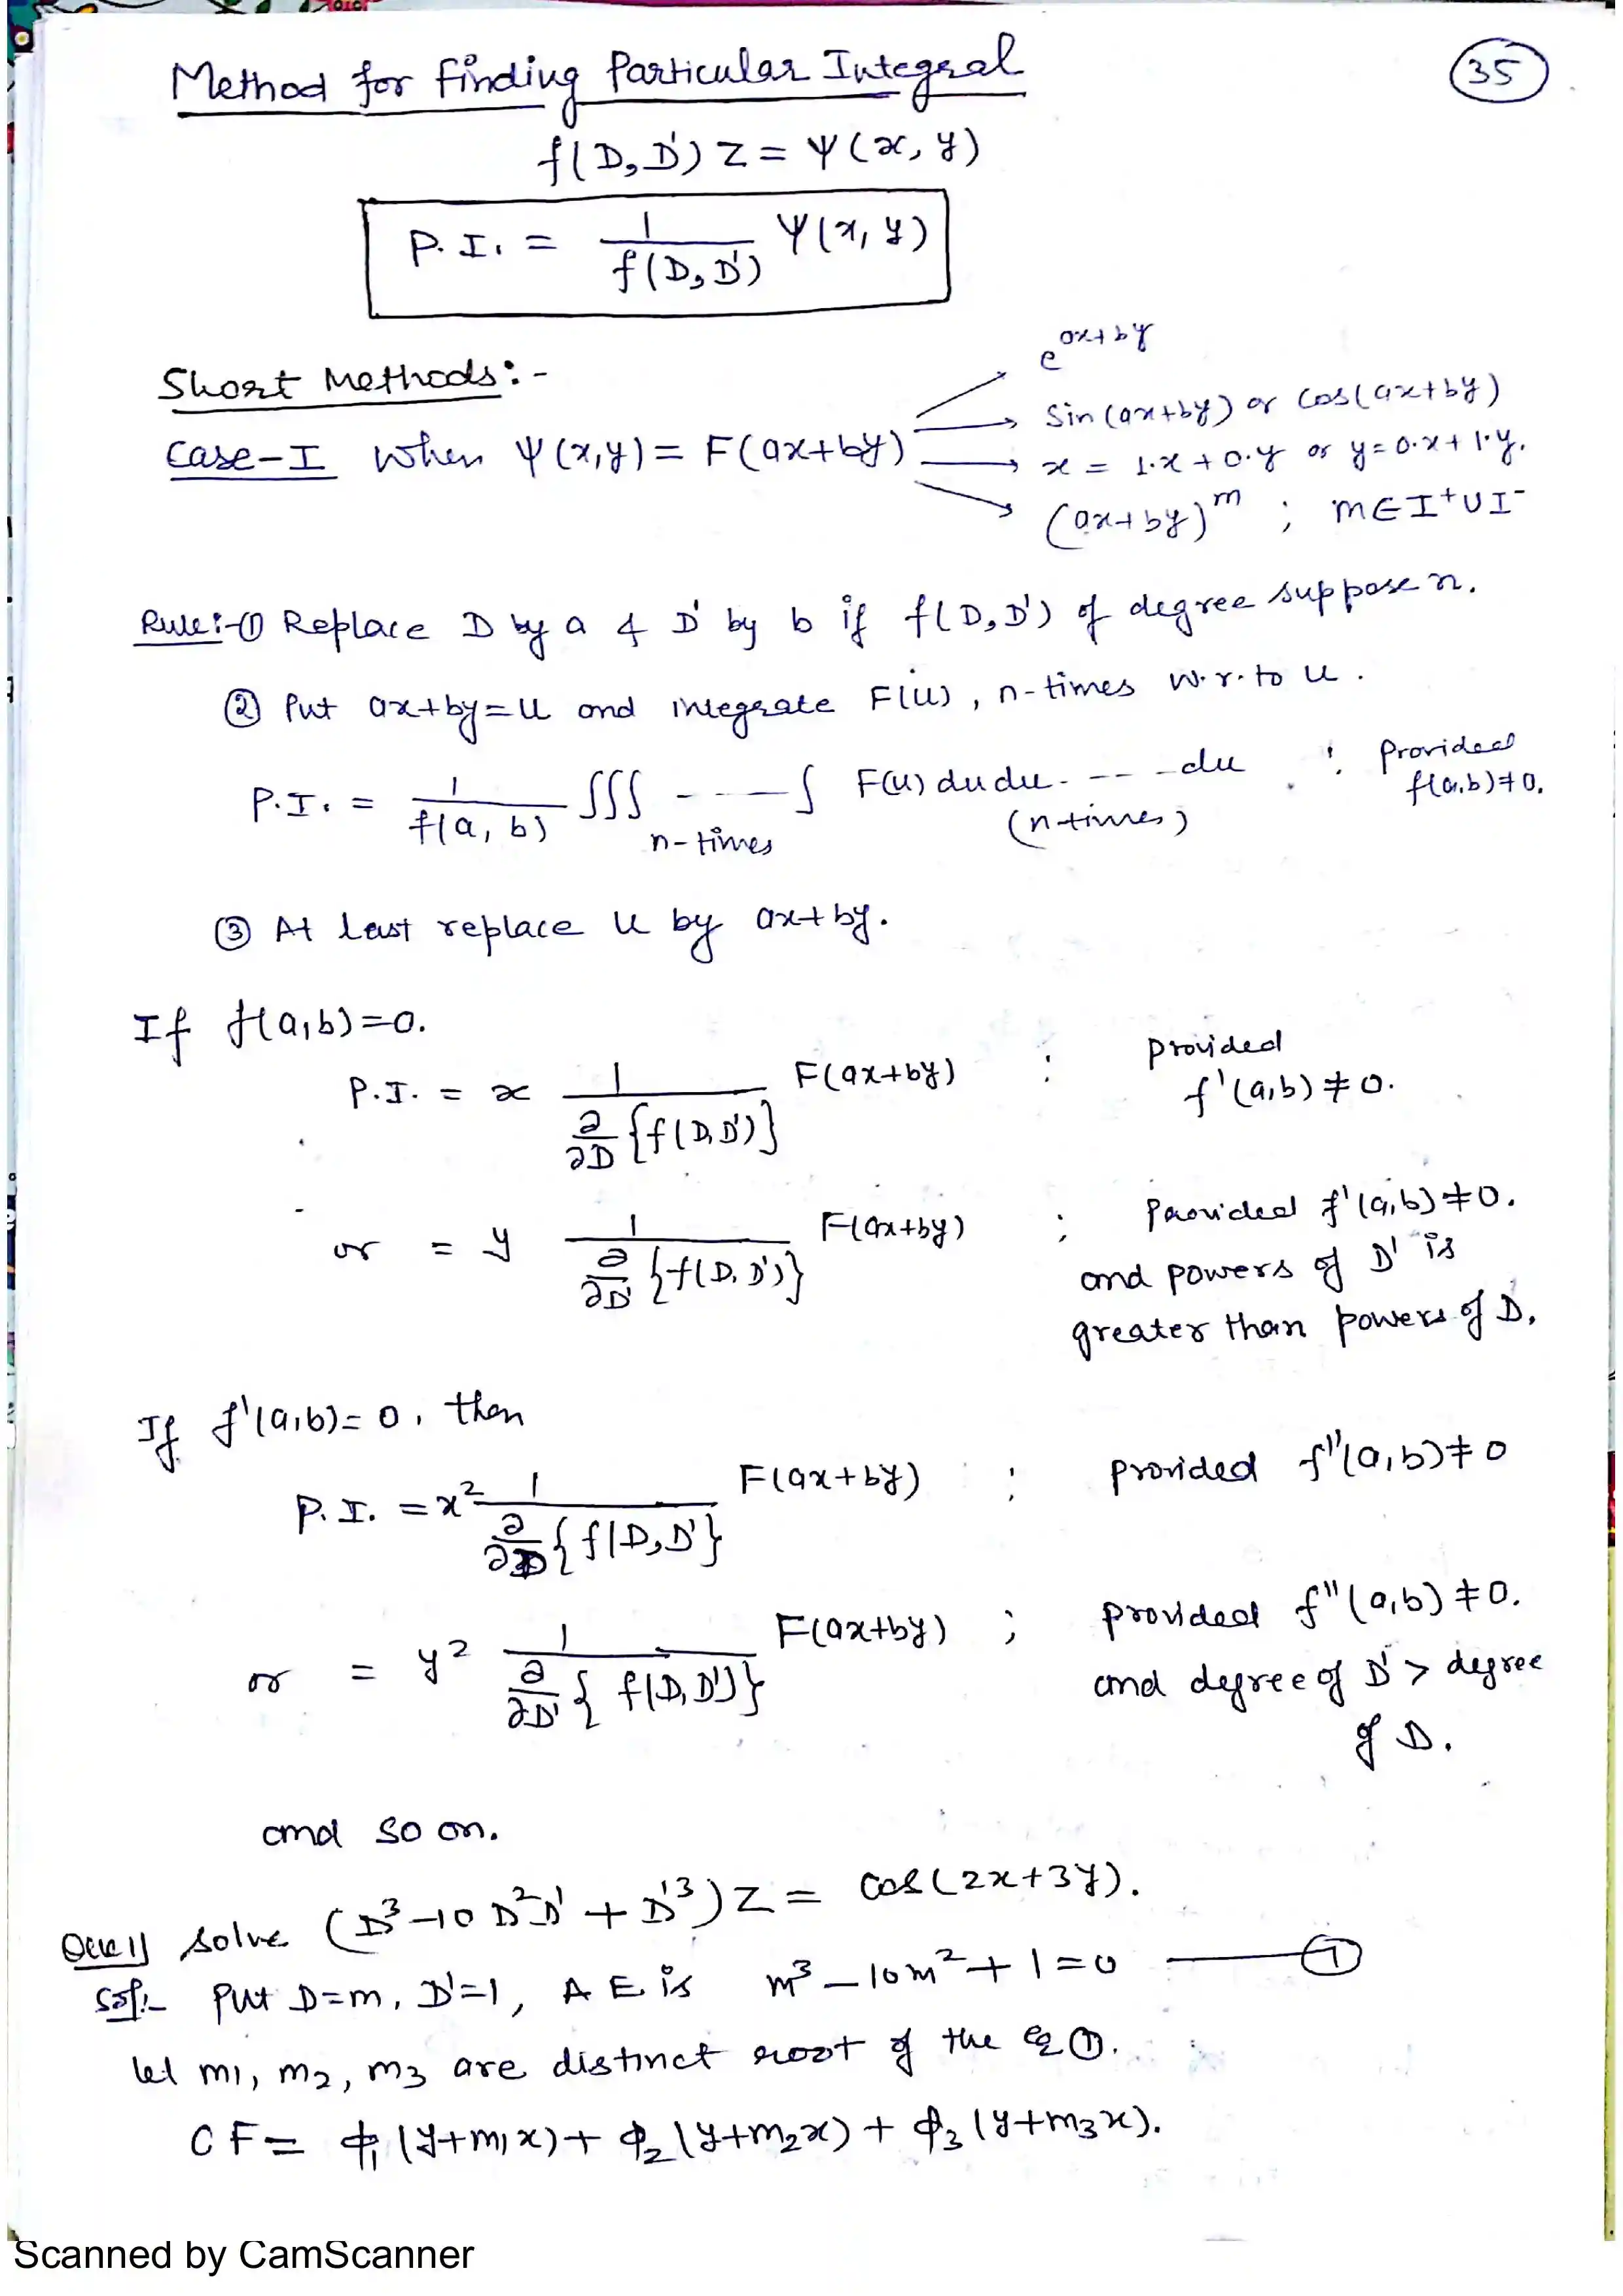 Method for Finding Particular Integral
35
f(D, D') Z = Ψ(x, y)
P. I. = 1/f(D, D') Ψ(x, y)
Short Methods:-
e^(ax+by)
Sin(ax+by) or Cos(ax+by)
Case-I When Ψ(x,y) = F(ax+by)
x = 1.x + 0.y or y = 0.x + 1.y.
(ax+by)^m ; m∈I⁺∪I⁻
Rule:-① Replace D by a & D' by b if f(D, D') of degree suppose n.
② Put ax+by=u and integrate F(u), n-times w.r.to u.
P.I. = 1/f(a, b) ∫∫∫ - - - ∫ F(u) du du - - - - du ; Provided f(a,b)≠0.
n-times (n-times)
③ At last replace u by ax+by.
If f(a,b)=0.
P.I. = x 1/(∂/∂D {f(D,D')}) F(ax+by) ; provided f'(a,b)≠0.
or = y 1/(∂/∂D' {f(D,D')}) F(ax+by) ; Provided f'(a,b)≠0.
and powers of D' is
greater than powers of D.
If f'(a,b)=0, then
P. I. = x² 1/(∂/∂D {f(D,D'}) F(ax+by) ; provided f''(a,b)≠0
or = y² 1/(∂/∂D' {f(D,D')}) F(ax+by) ; provided f''(a,b)≠0.
and degree of D' > degree
of D.
and so on.
Que 1) Solve (D³-10 D²D' + D'³) Z = Cos(2x+3y).
Sol:- Put D=m, D'=1, A E is m³-10m²+1=0 —— ①
let m₁, m₂, m₃ are distinct root of the eq ①.
C F = ϕ₁(y+m₁x) + ϕ₂(y+m₂x) + ϕ₃(y+m₃x).
Scanned by CamScanner